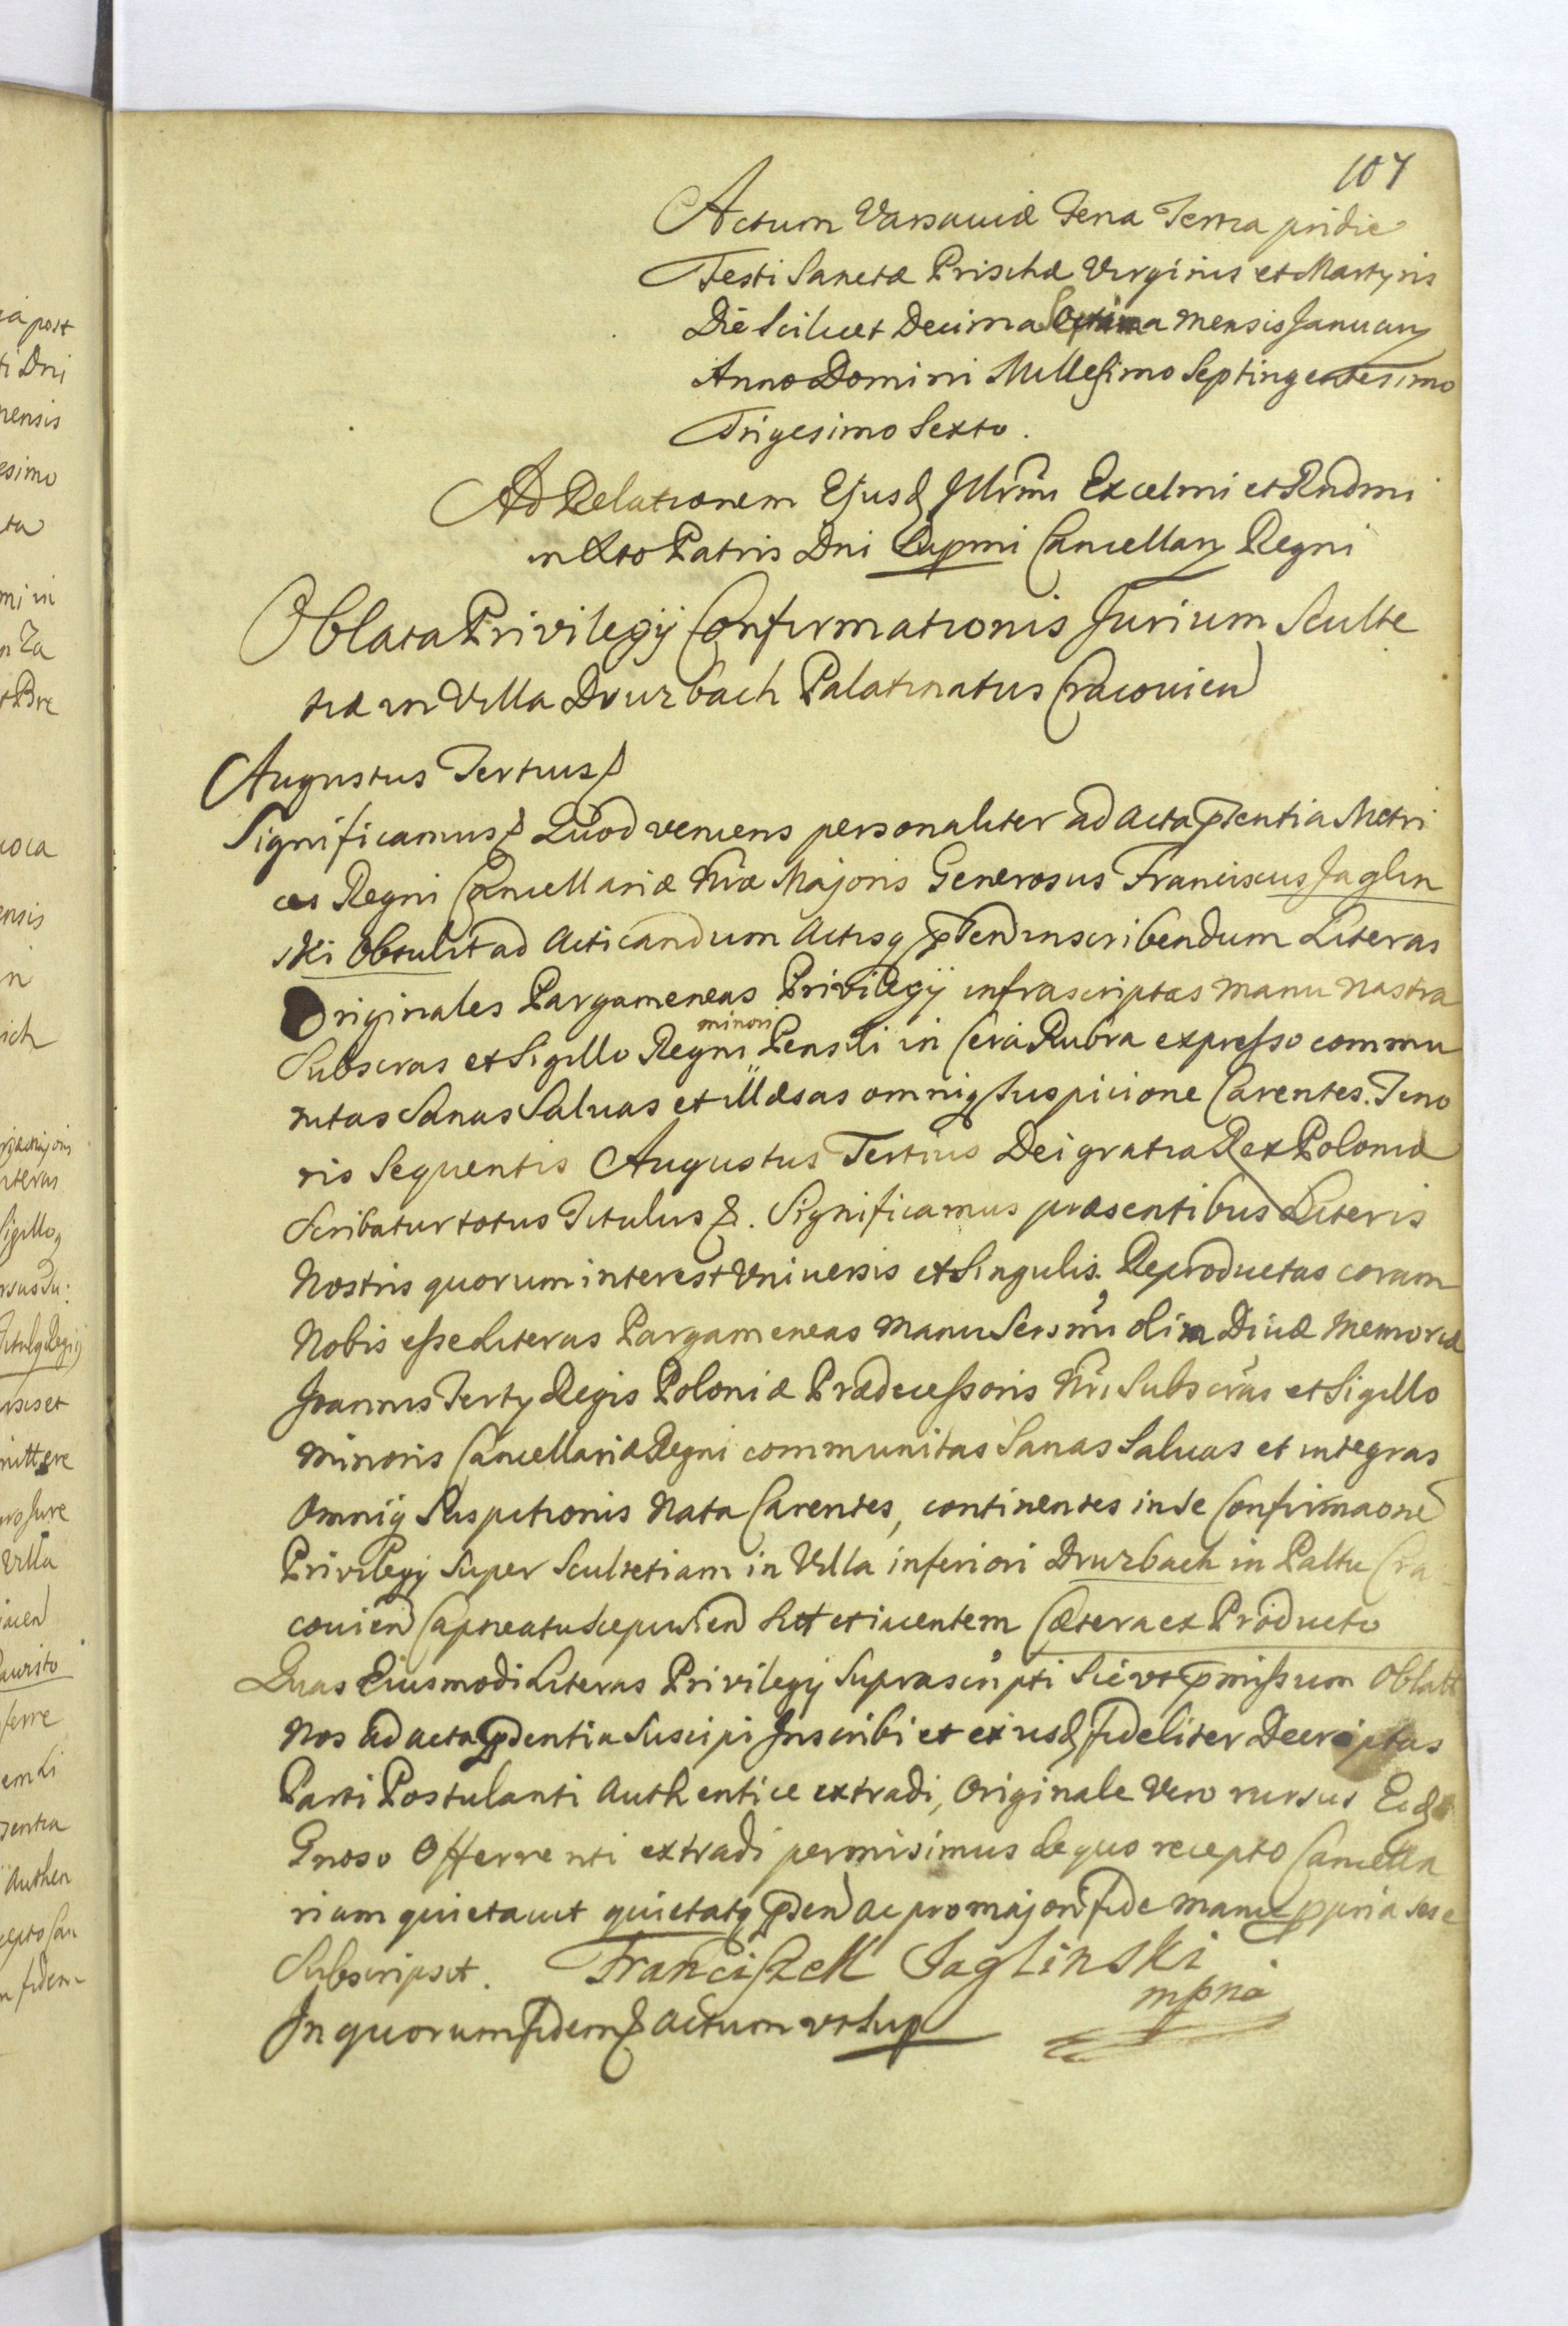 107
Actum Varsaviæ Feria Tertia pridie
Festi Sanctæ Prischæ Virginis et Martyris
Die Scilicet Decima Septima mensis January
Anno Domini Millesimo Septingentesimo
Trigesimo Sexto.
Ad Relationem Ejusd Illrmi Excelmi et Rndmi
in Xto Patris Dni Supmi Cancellary Regni
Oblata Privilegij Confirmationis Jurium Sculte
tiæ in Villa Drurzbach Palatinatus Cracovien
Augustus Tertius &
Significamus & Quod veniens personaliter ad Acta pntia Metri
ces Regni Cancellariæ Nræ Majoris Generosus Franciscus Jaglin
ski Obtulit ad Acticandum Actisq pnten inscribendum Literas
Originales Pargameneas Privilegij infrascriptas manu nostra
Subscras et Sigillo Regni minori Pensili in Cera Rubra expresso commu
nitas Sanas Salvas et illæsas omniq Suspicione Carentes. Teno
ris Sequentis Augustus Tertius Dei gratia Rex Poloniæ
Scribatur totus Titulus &. Significamus præsentibus Literis
Nostris quorum interest Universis et Singulis. Reproductas coram
Nobis esse Literas Pargameneas manu Sersmi olim Divæ memoriæ
Joannis Terty Regis Poloniæ Prædecessoris Nri Subscras et Sigillo
minoris Cancellariæ Regni communitas Sanas Salvas et integras
Omniq Suspitionis Nota Carentes, continentes in se Confirmaone
Privilegy Super Scultetiam in Villa inferiori Drurzbach in Paltu Cra
covien Capneatu Scepusien Sit et iacentem Cætera ex Producto
Quas Eiusmodi Literas Privilegij Suprascripti Sic vt pmissum Oblatt
Nos ad acta pntia Suscipi Inscribi et ex iisd fideliter Descriptas
Parti Postulanti Authentice extradi, Originale Vero rursus Eid
Gnoso Offerenti extradi permisimus de quo recepto Cancella
riam quietavit quietatq pnten ac pro majori fide manu ppria sese
Subscripsit. Franciszek Jaglinski
mpria
In quorum fidem & Actum vt Sup
ia post
ti Dni
nensis
esimo
ensis
Authen
m fidem